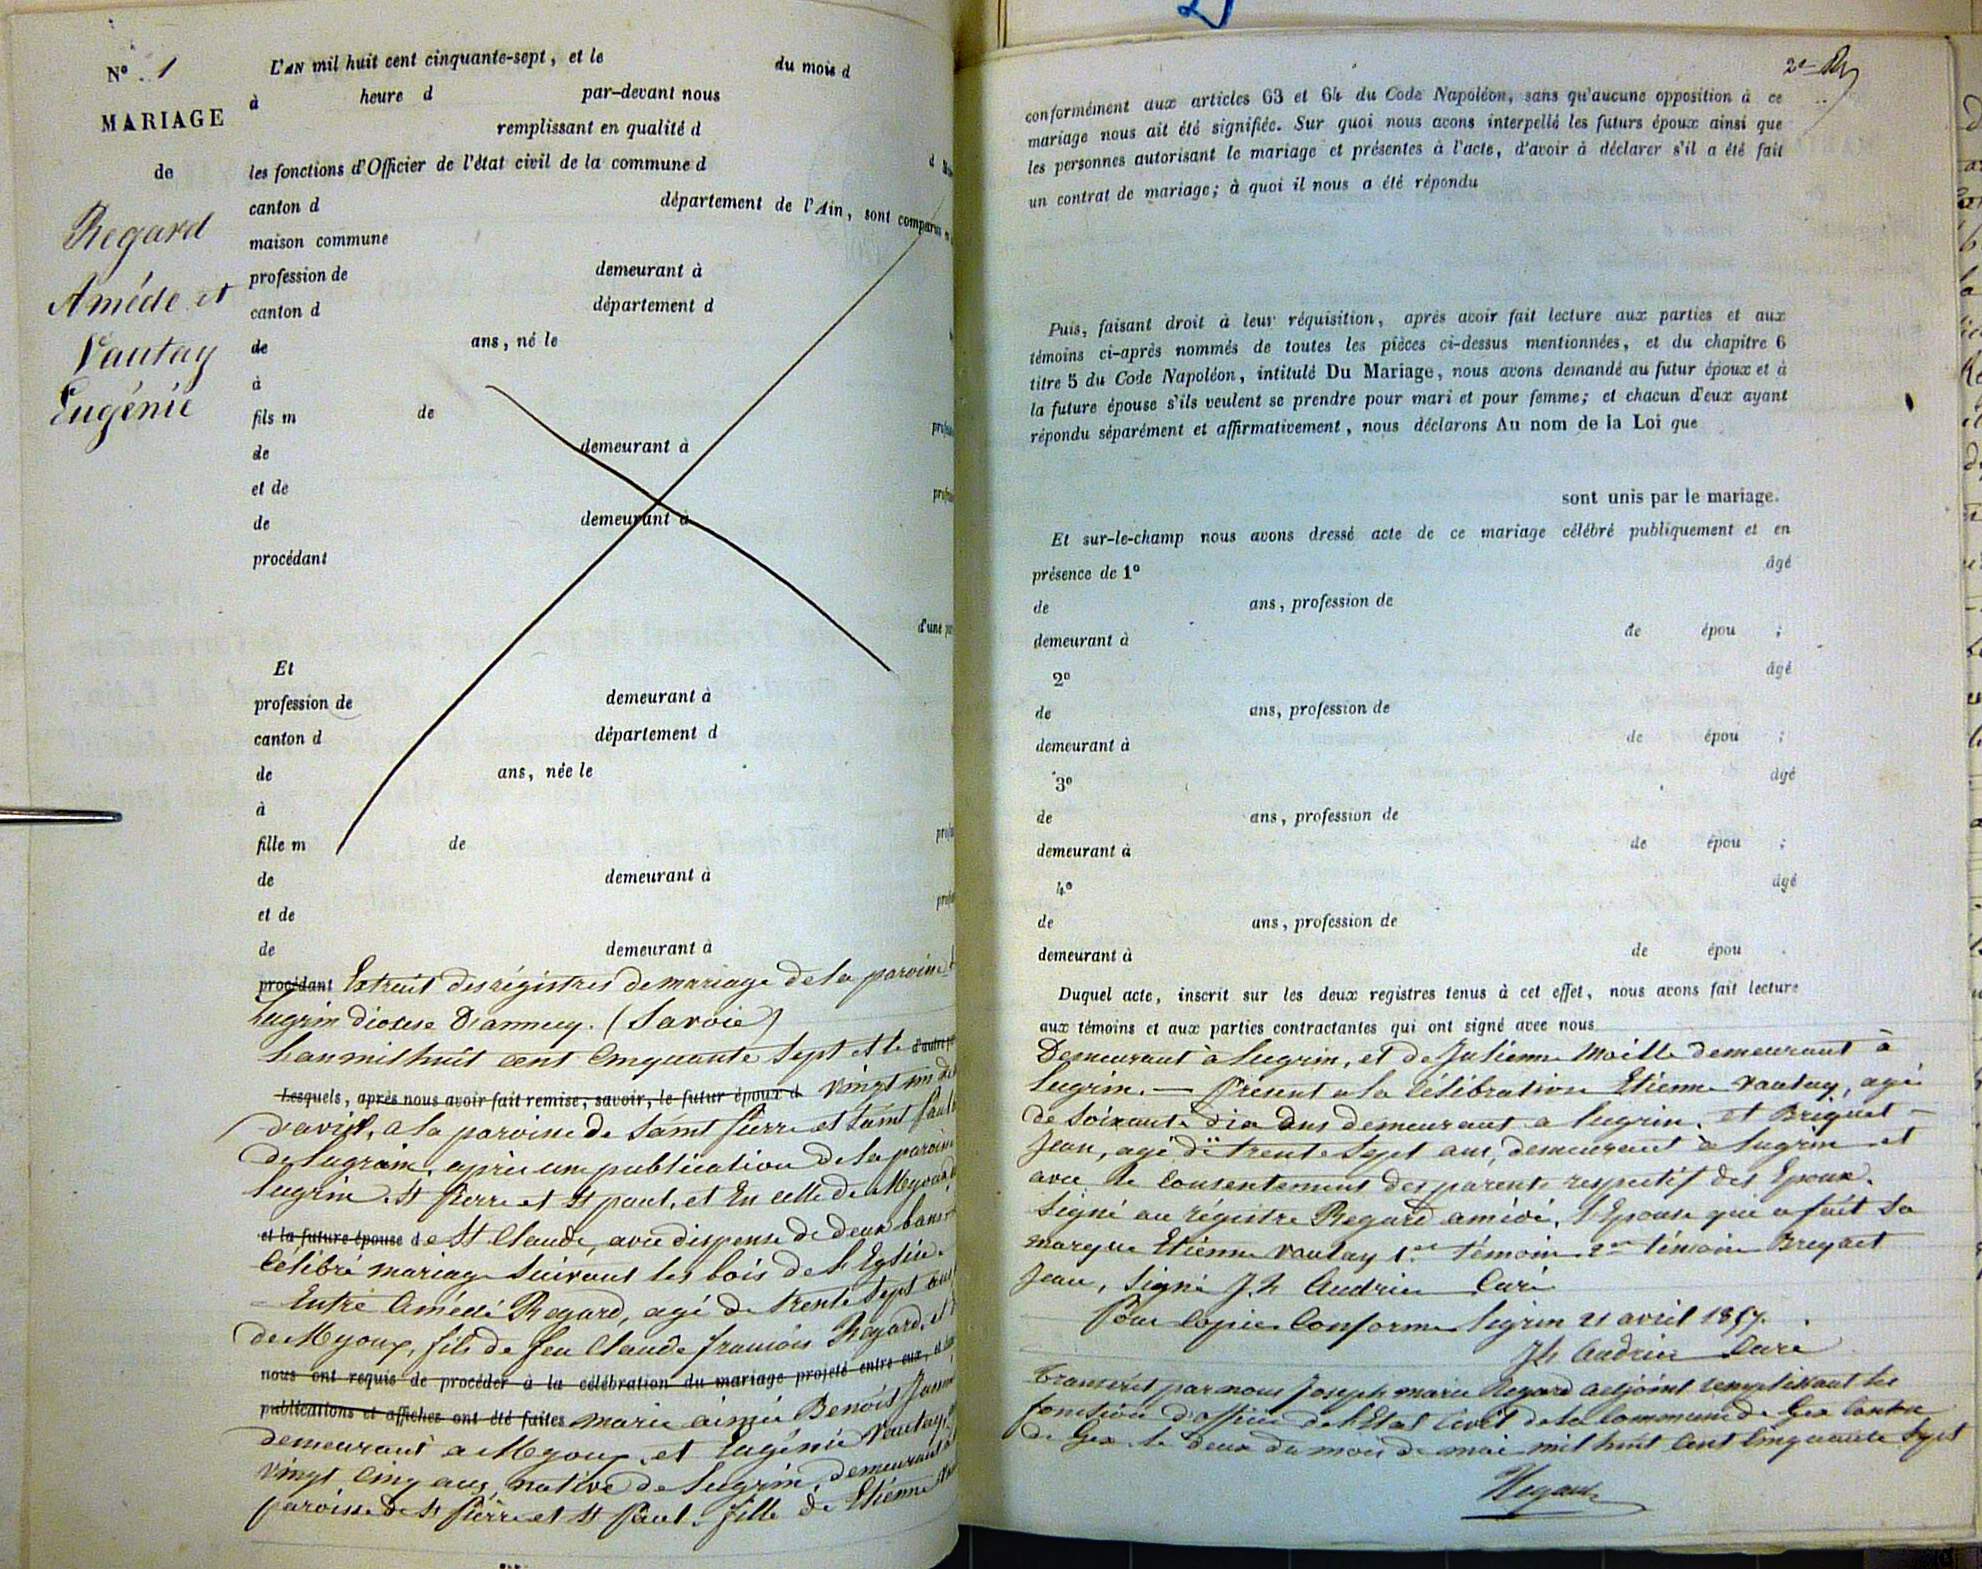 N° 1
MARIAGE
de
Regard
Amédé et
Vautay
Eugénie
L'AN mil huit cent cinquante-sept, et le du mois d
à heure d par-devant nous
remplissant en qualité d
les fonctions d'Officier de l'état civil de la commune d
canton d département de l'Ain, sont comparus
maison commune
profession de demeurant à
canton d département d
de ans, né le
à
fils m de
de demeurant à
et de
de demeurant à
procédant
d'une
Et
profession de demeurant à
canton d département d
de ans, née le
à
fille m de
de demeurant à
et de
de demeurant à
procédant Extrait des régistres de mariage de la paroisse
Lugrin diocèse D'annecy. (Savoie)
L'an mil huit cent Cinquante Sept et le d'autre
Lesquels, après nous avoir fait remise, savoir, le futur époux d vingt un
d'avril, a la paroisse de Saint Pierre et Saint Paul
de Lugrin, après une publication de la paroisse
Lugrin. St Pierre et St paul, et En celle de Myoux
et la future épouse de St Claude, avec dispense de deux bans
Célébré mariage Suivant les Lois de L'Eglise.
Entre Amédé Regard, agé de trente Sept ans
de Myoux, fils de feu Claude françois Regard, et
nous ont requis de procéder à la célébration du mariage projeté entre eux,
publications et affiches ont été faites marie aimée Benoit
demeurant a Myoux, et Eugénie Vautay,
vingt Cinq ans, native de Lugrin, demeurant
paroisse de St Pierre et St Paul. fille de Etienne
2e
conformément aux articles 63 et 64 du Code Napoléon, sans qu'aucune opposition à ce
mariage nous ait été signifiée. Sur quoi nous avons interpellé les futurs époux ainsi que
les personnes autorisant le mariage et présentes à l'acte, d'avoir à déclarer s'il a été fait
un contrat de mariage; à quoi il nous a été répondu
Puis, faisant droit à leur réquisition, après avoir fait lecture aux parties et aux
témoins ci-après nommés de toutes les pièces ci-dessus mentionnées, et du chapitre 6
titre 5 du Code Napoléon, intitulé Du Mariage, nous avons demandé au futur époux et à
la future épouse s'ils veulent se prendre pour mari et pour femme; et chacun d'eux ayant
répondu séparément et affirmativement, nous déclarons Au nom de la Loi que
sont unis par le mariage.
Et sur-le-champ nous avons dressé acte de ce mariage célébré publiquement et en
présence de 1° âgé
de ans, profession de
demeurant à de épou ;
2° âgé
de ans, profession de
demeurant à de épou ;
3° âgé
de ans, profession de
demeurant à de épou ;
4° âgé
de ans, profession de
demeurant à de épou .
Duquel acte, inscrit sur les deux registres tenus à cet effet, nous avons fait lecture
aux témoins et aux parties contractantes qui ont signé avec nous
Demeurant à Lugrin, et de Julienne Moille demeurant à
Lugrin. — Présent a la Célébration Etienne Vautay, agé
de Soixante dix Ans demeurant a Lugrin, et Briquet
Jean, agé de trente Sept ans, demeurant à Lugrin et
avec le Consentement des parents respectif des Epoux.
Signé au régistre Regard amédé, L'Epouse qui a fait Sa
marque Etienne Vautay 1er témoin 2me témoin Breqaet
Jean, Signé J.h Audrier Curé
Pour Copie Conforme Lugrin 21 avril 1857.
Jh Audrier Curé
Transcrit par nous Joseph marie Regard adjoint remplissant les
fonctions d'officier de L'Etat Civil de la Commune de Gex Canton
de Gex le deux du mois de mai mil huit Cent Cinquante Sept
Regard